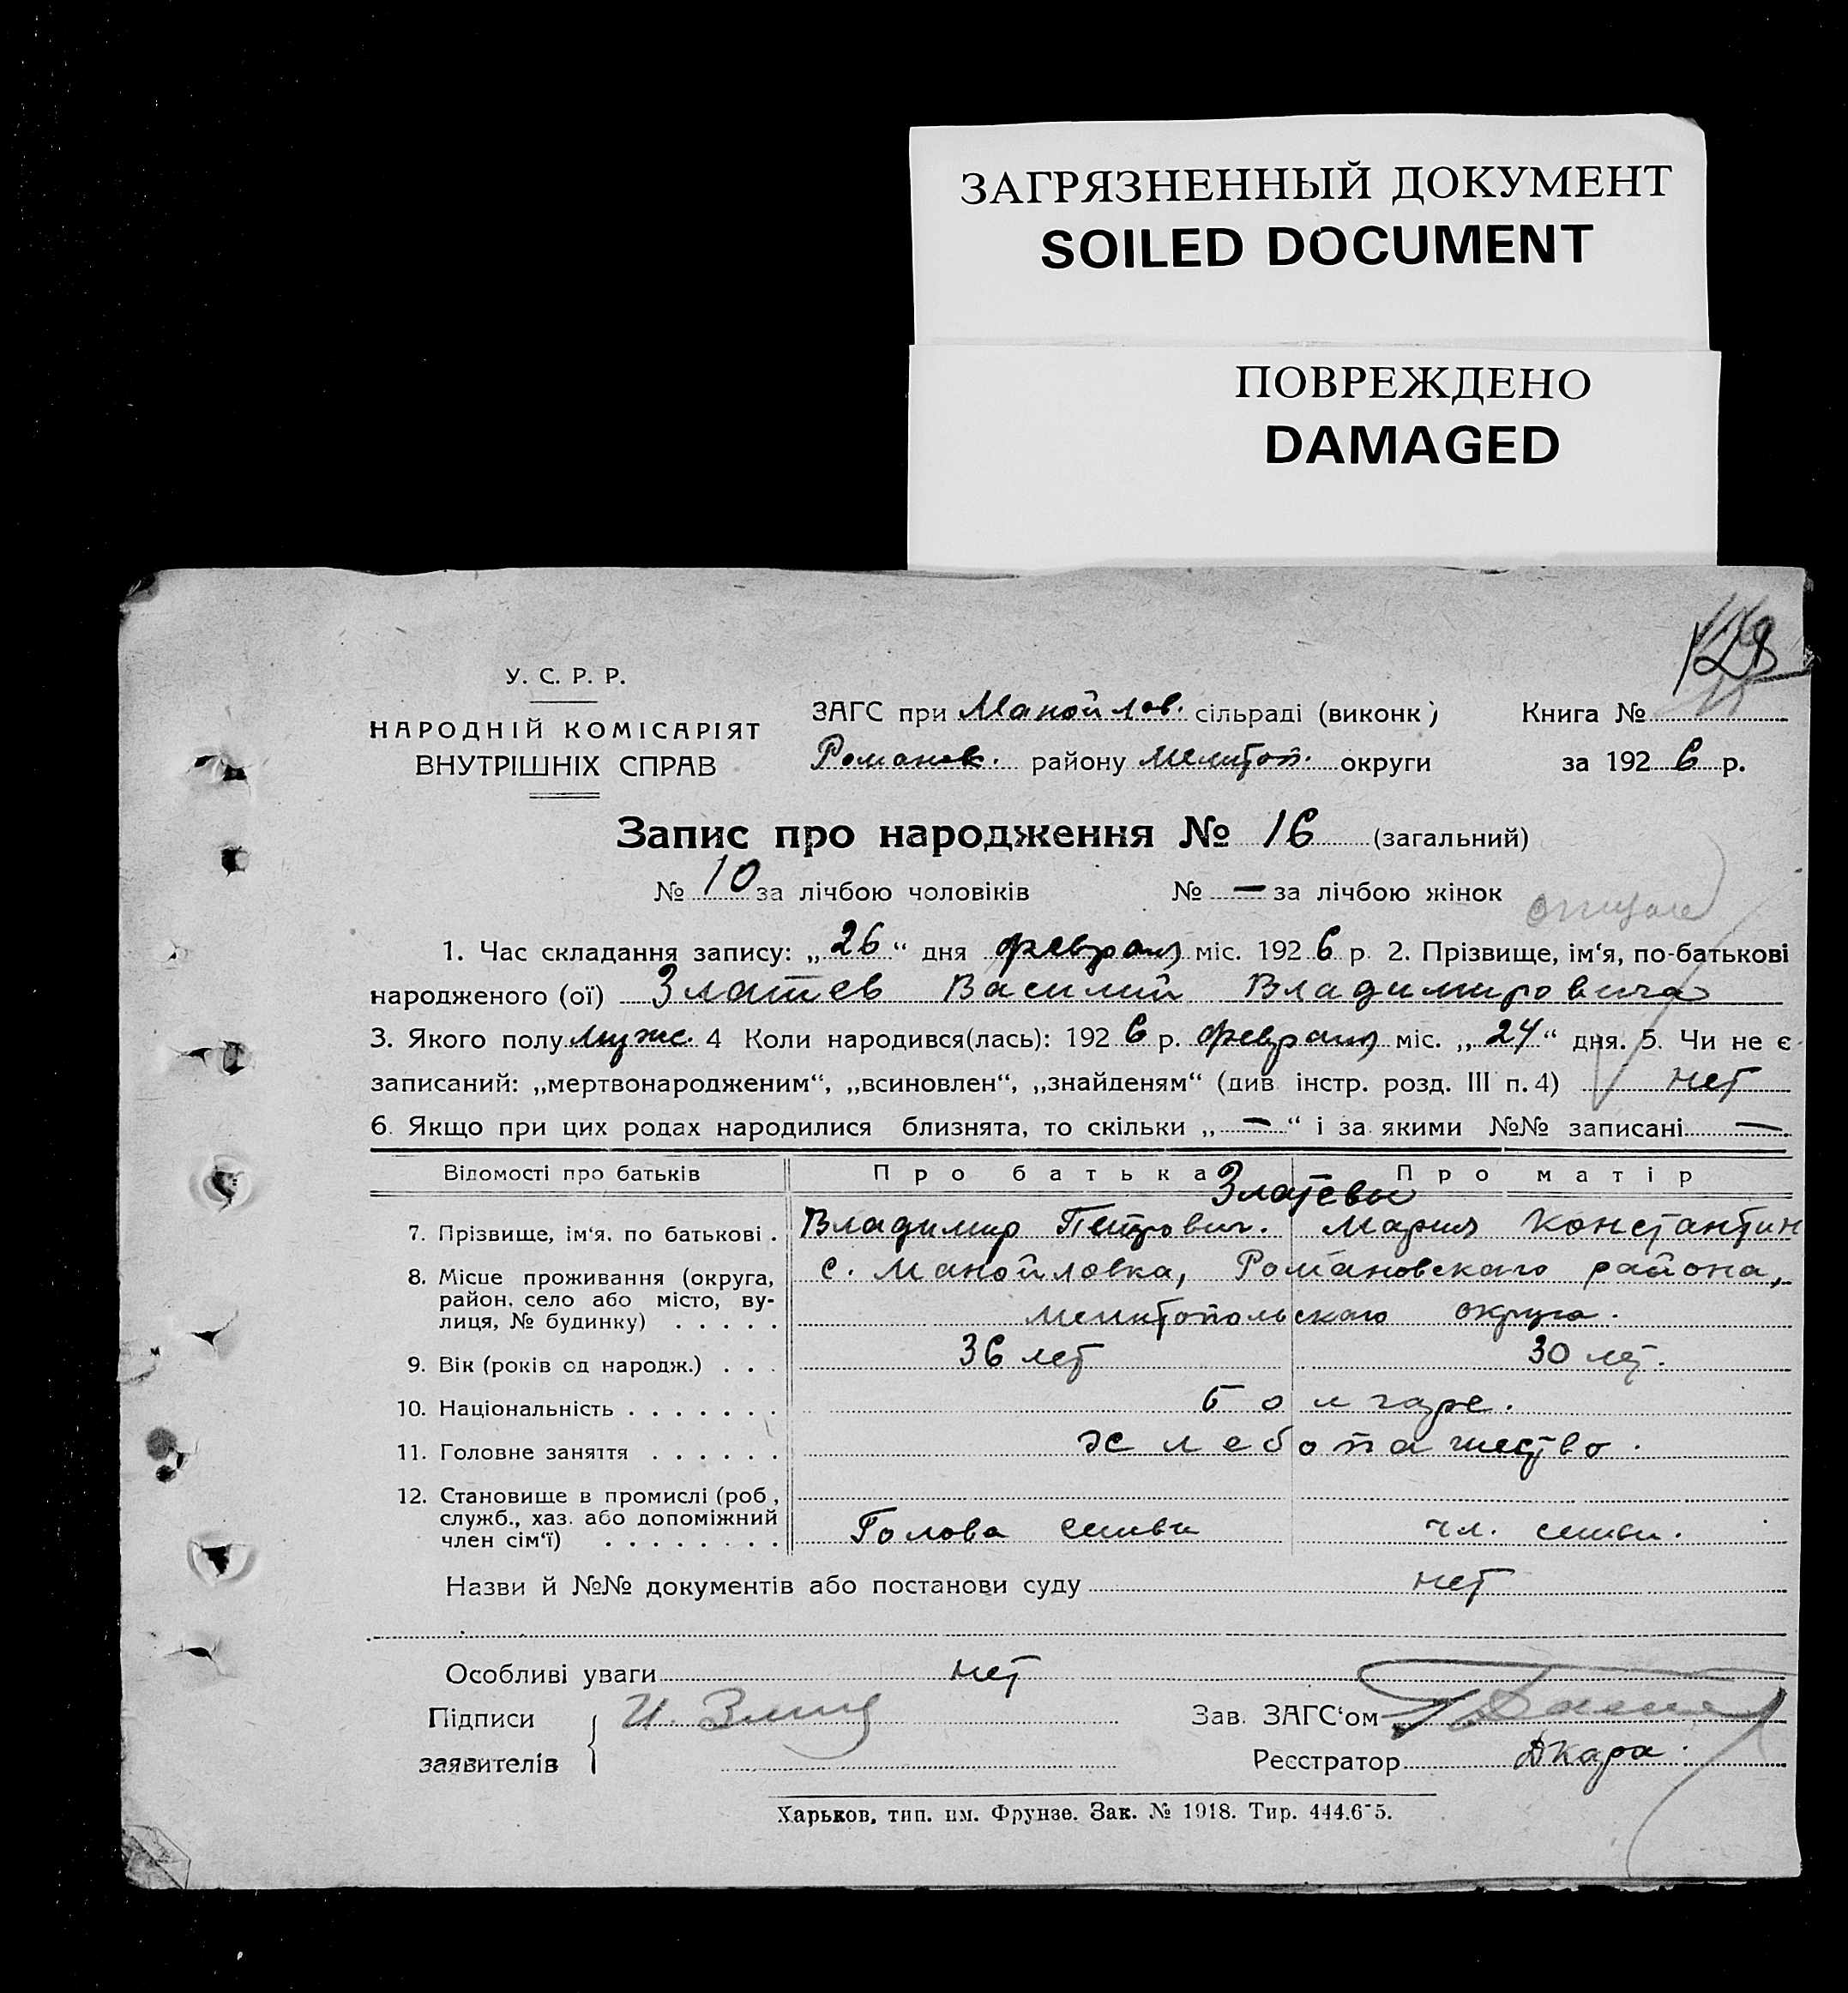 ЗАГРЯЗНЕННЫЙ ДОКУМЕНТ
SOILED DOCUMENT
ПОВРЕЖДЕНО
DAMAGED
У. С. Р. Р.
НАРОДНІЙ КОМІСАРІЯТ
ВНУТРІШНІХ СПРАВ
ЗАГС при Манойлов. сільраді (виконк)
Книга №
Романов. району Мелитоп. округи
за 1926 р.
Запис про народження № 16 (загальний)
№ 10 за лічбою чоловіків № — за лічбою жінок
1. Час складання запису: „26“ дня февраля міс. 1926 р. 2. Прізвище, ім‘я, по-батькові
народженого (ої) Златев Василий Владимировича
3. Якого полу мужс. 4 Коли народився(лась): 1926 р. февраля міс. „24“ дня. 5. Чи не є
записаний: „мертвонародженим“, „всиновлен“, „знайденям“ (див інстр. розд. III п. 4) нет
6. Якщо при цих родах народилися близнята, то скільки „—“ і за якими №№ записані —
Відомості про батьків Про батька Про матір
Златевы
7. Прізвище, ім‘я, по батькові . Владимир Петрович. Мария Константин
8. Місце проживання (округа, район, село або місто, вулиця, № будинку) . . . . .
с. Манойловка, Романовского района,
Мелитопольскаго округа.
9. Вік (років од народж.) . . . 36 лет 30 лет.
10. Національність . . . . . . . болгаре.
11. Головне заняття . . . . . . хлебопашество.
12. Становище в промислі (роб, служб., хаз. або допоміжний член сім‘ї) . . . . . . . .
Голова семьи чл. семьи.
Назви й №№ документів або постанови суду нет
Особливі уваги нет
Підписи
заявителів
И.
Зав. ЗАГС‘ом
Реєстратор ДКара.
Харьков, тип. им. Фрунзе. Зак. № 1918. Тир. 444.675.